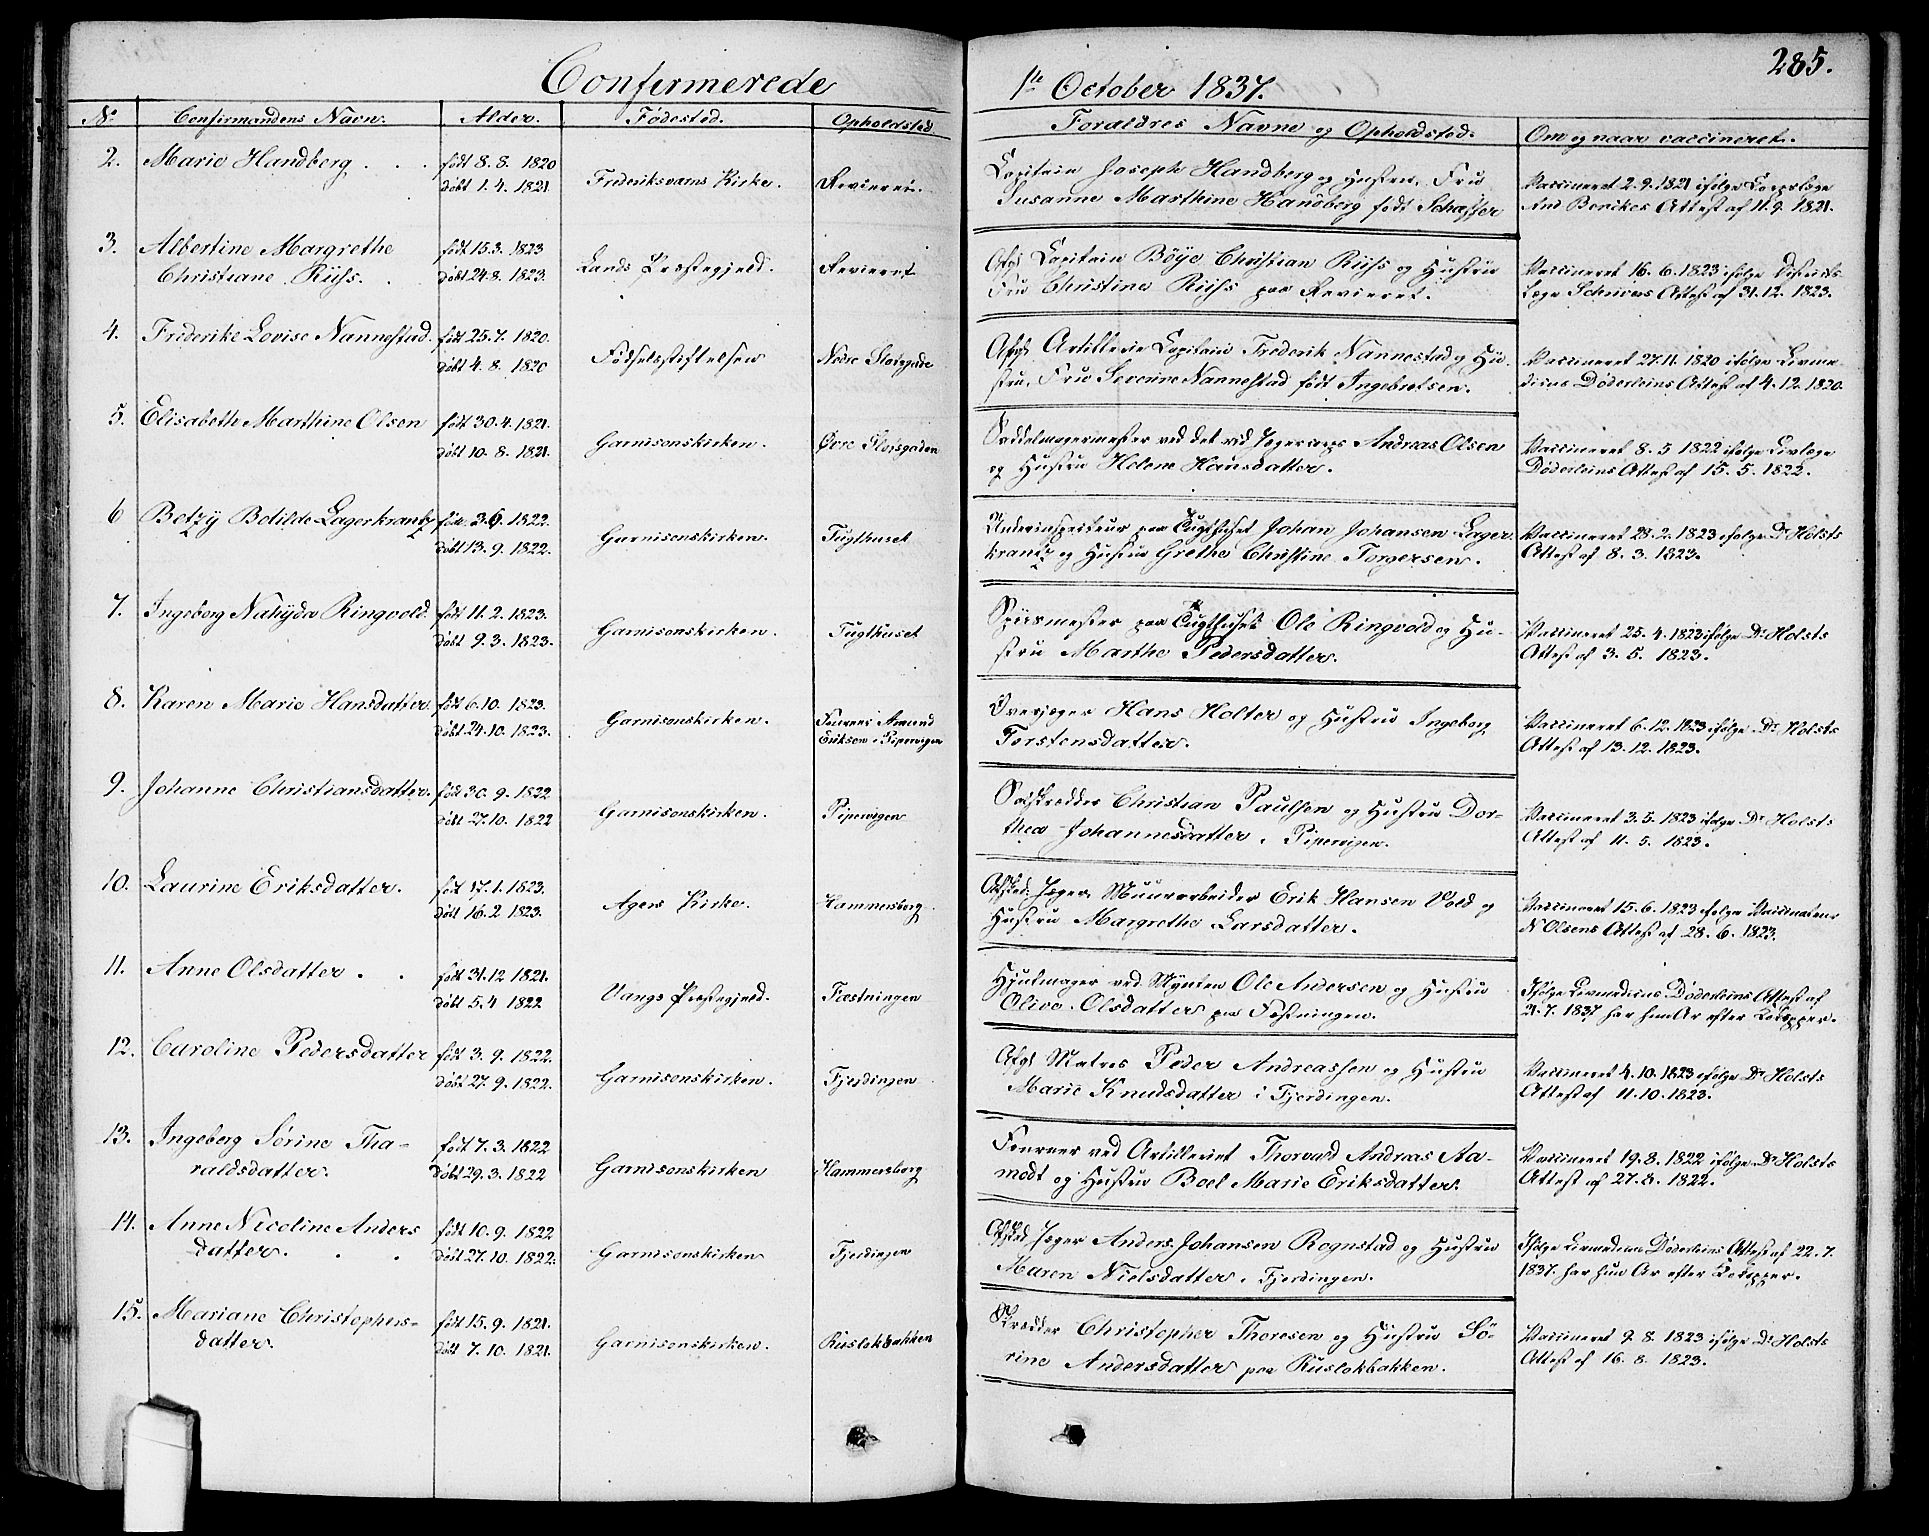 285.
Confirmerede
1te October 1837.
No Confirmandens Navn. Alder. Fødested. Opholdsted
Forældres Navne og Opholdsted. Om og naar vaccineret.
2. Marie Handberg født 8. 8. 1820
døbt 1. 4. 1821. Frederiksværns Kirke. Revieret.
Capitain Joseph Handberg og Hustru, Fru
Susanne Marthine Handberg født Schaffer
Vaccineret 2. 9. 1821 ifølge
Attest af 11. 9. 1821.
3. Albertine Margrethe født 15. 3. 1823
Christiane Riiss. døbt 24. 8. 1823. Lands Præstegjeld. Revieret
Afgl Capitain Böye Christian Riiss og Hustru
Fru Christine Riiss paa Revieret.
Vaccineret 16. 6. 1823 ifølge Districts
Læge Attest af 31. 12. 1823.
4. Frederike Lovise Nannestad. født 25. 7. 1820.
døbt 4. 8. 1820 Födselsstiftelsen Nedre Slotsgade
Artillerie Capitain Frederik Nannestad og Hu-
stru, Fru Severine Nannestad født Ingebretsen.
Vaccineret 27. 11. 1820 ifølge Livme-
dicus Döderleins Attest af 4. 12. 1820.
5. Elisabeth Marthine Olsen født 30. 4. 1821.
døbt 10. 8. 1821. Garnisonskirken. Øvre Slotsgaden
Saddelmagermester ved det rid. Jægercorps Andreas Olsen
og Hustru Helene Hansdatter.
Vaccineret 8. 5 1822 ifølge Livlæge
Döderleins Attest af 15. 5. 1822.
6 Betzÿ Botilde Lagerkrantz født 3. 6. 1822.
døbt 13. 9. 1822. Garnisonskirken. Tugthuset
Underinspecteur paa Tugthuset Johan Johansen Lager-
krantz og Hustru Grethe Christine Torgersen.
Vaccineret 28. 2. 1823 ifølge Dr Holsts
Attest af 8. 3. 1823.
7. Ingeborg Ringvold. født 11. 2. 1823.
døbt 9. 3. 1823. Garnisonskirken. Tugthuset
paa Tugthuset Ole Ringvold og Hu-
stru Marthe Pedersdatter.
Vaccineret 25. 4. 1823 ifølge Dr Holsts
Attest af 3. 5. 1823.
8. Karen Marie Hansdatter. født 6. 10. 1823.
døbt 24. 10. 1823. Garnisonskirken. Fourer Amund
Eriksen i Pipervigen
Overjæger Hans Holter og Hustru Ingeborg
Torstensdatter.
Vaccineret 6. 12. 1823 ifølge Dr Holsts
Attest af 13. 12. 1823.
9. Johanne Christiansdatter. født 30. 9. 1822
døbt 27. 10. 1822 Garnisonskirken. Pipervigen
Christian Paulsen og Hustru Dor-
thea Johannesdatter i Pipervigen.
Vaccineret 3. 5. 1823 ifølge Dr Holsts
Attest af 11. 5. 1823.
10. Laurine Eriksdatter. født 17. 1. 1823.
døbt 16. 2 1823. Agers Kirke. Hammersborg
Afsked: Jæger, Muurarbeider Erik Hansen Vold og
Hustru Margrethe Larsdatter.
Vaccineret 15. 6. 1823 ifølge Vaccinateur
N Olsens Attest af 28. 6. 1823.
11. Anne Olsdatter født 31. 12 1821.
døbt 5. 4 1822 Vangs Præstegjeld. Fæstningen
Hjulmager ved Mynten Ole Andersen og Hustru
Olive Olsdatter paa Fæstningen.
Ifølge Livmedicus Döderleins Attest af
21. 7. 1837 har hun Ar efter Kokopper.
12. Caroline Pedersdatter født 3. 9. 1822.
døbt 27. 9. 1822. Garnisonskirken. Fjerdingen
Afgl Matros Peder Andreassen og Hustru
Marie Knudsdatter i Fjerdingen.
Vaccineret 4. 10. 1823 ifølge Dr Holsts
Attest af 11. 10. 1823.
13. Ingeborg Sörine Tha- født 7. 3. 1822
raldsdatter. døbt 29. 3. 1822 Garnisonskirken Hammersborg
Fourer ved Artilleriet Thorvald Andreas Aa-
modt og Hustru Boel Marie Eriksdatter.
Vaccineret 19. 8. 1822 ifølge Dr Holsts
Attest af 27. 8. 1822.
14. Anne Nicoline Anders født 10. 9. 1822
datter. døbt 27. 10. 1822. Garnisonskirken Fjerdingen
Afsked Jæger Anders Johansen Rognstad og Hustru
Maren Nielsdatter i Fjerdingen.
Ifølge Livmedicus Döderleins Attest af 22. 7.
1837. har hun Ar efter Kokopper.
15. Mariane Christophers- født 15. 9. 1821.
datter. døbt 7. 10. 1821. Garnisonskirken. Ruslokbakken
Skrædder Christopher Thoresen og Hustru Sö-
rine Andersdatter paa Ruslokbakken.
Vaccineret 9. 8. 1823 ifølge Dr Holsts
Attest af 16. 8. 1823.